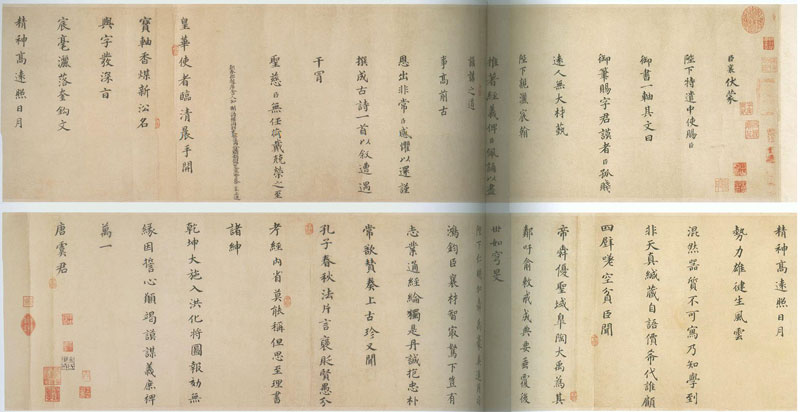 臣襄伏蒙
陛下特遣中使賜臣
御書一軸其文曰
御筆賜字君謨者臣孤賤
遠人無大材藝
陛下親灑宸翰
推著經義俾臣佩誦以盡
之道
事高前古
恩出非常臣感懼以還謹
撰成古詩一首以敘遭遇
干冒
聖慈臣無任荷戴兢榮之至
皇華使者臨清晨手開
寶軸香煤新沿名
與字發深旨
宸毫灑落奎鉤文
精神高遠照日月
精神高遠照日月
勢力雄健生風雲
混然器質不可寫乃知學到
非天真緘藏自語價希代誰顧
四壁嗟空貧臣聞
帝舜優聖域皋陶大禹為其
鄰吁俞敕戒成典要垂覆後
世如穹旻
陛下仁明加舜禹豪英進用司
鴻鈞臣襄材智最駑下豈有
志業通經綸獨是丹誠抱忠朴
常欲贊奏上古珍又聞
孔子春秋法片言褒貶賢愚分
考經內省莫能稱但思至理書
諸紳
乾坤大施入洪化將圖報効無
緣因誓心願竭謨謀義庶裨
萬一
唐虞君